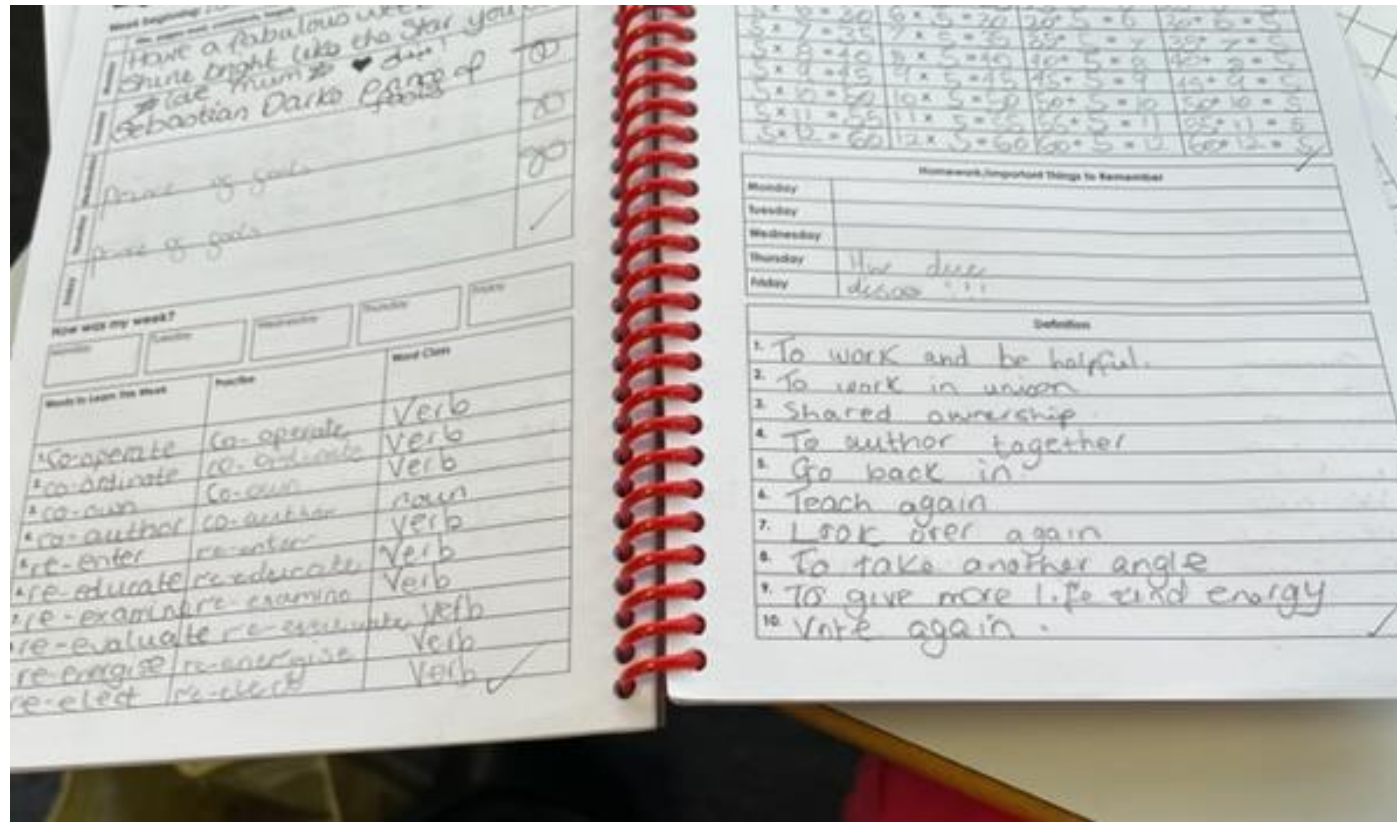 Week beginning:
Have a fabulous week
Shine bright like the Star you
love mum
Sebastian Darko Prince of
goals
Prince of goals
Prince of goals
Wednesday
Thursday
Friday
How was my week?
Monday Tuesday Wednesday Thursday Friday
Words to Learn This Week Practise Word Class
1. co-operate co-operate Verb
2. co-ordinate co-ordinate Verb
3. co-own co-own Verb
4. co-author co-author noun
5. re-enter re-enter Verb
6. re-educate re-educate Verb
7. re-examine re-examine Verb
re-evaluate re-evaluate Verb
re-energise re-energise Verb
re-elect re-elect Verb
5 x 6 = 30 6 x 5 = 30 30÷ 5 = 6 30÷ 6 = 5
5 x 7 = 35 7 x 5 = 35 35÷ 5 = 7 35÷ 7 = 5
5 x 8 = 40 8 x 5 = 40 40÷ 5 = 8 40÷ 8 = 5
5 x 9 = 45 9 x 5 = 45 45÷ 5 = 9 45÷ 9 = 5
5 x 10 = 50 10 x 5 = 50 50÷ 5 = 10 50÷ 10 = 5
5 x 11 = 55 11 x 5 = 55 55÷ 5 = 11 55÷ 11 = 5
5 x 12 = 60 12 x 5 = 60 60÷ 5 = 12 60÷ 12 = 5
Homework/Important Things to Remember
Monday
Tuesday
Wednesday
Thursday Hw due
Friday disco !!!
Definition
1. To work and be helpful.
2. To work in unison
3. Shared ownership
4. To author together
5. Go back in
6. Teach again
7. Look over again
8. To take another angle
9. To give more life and energy
10. Vote again.